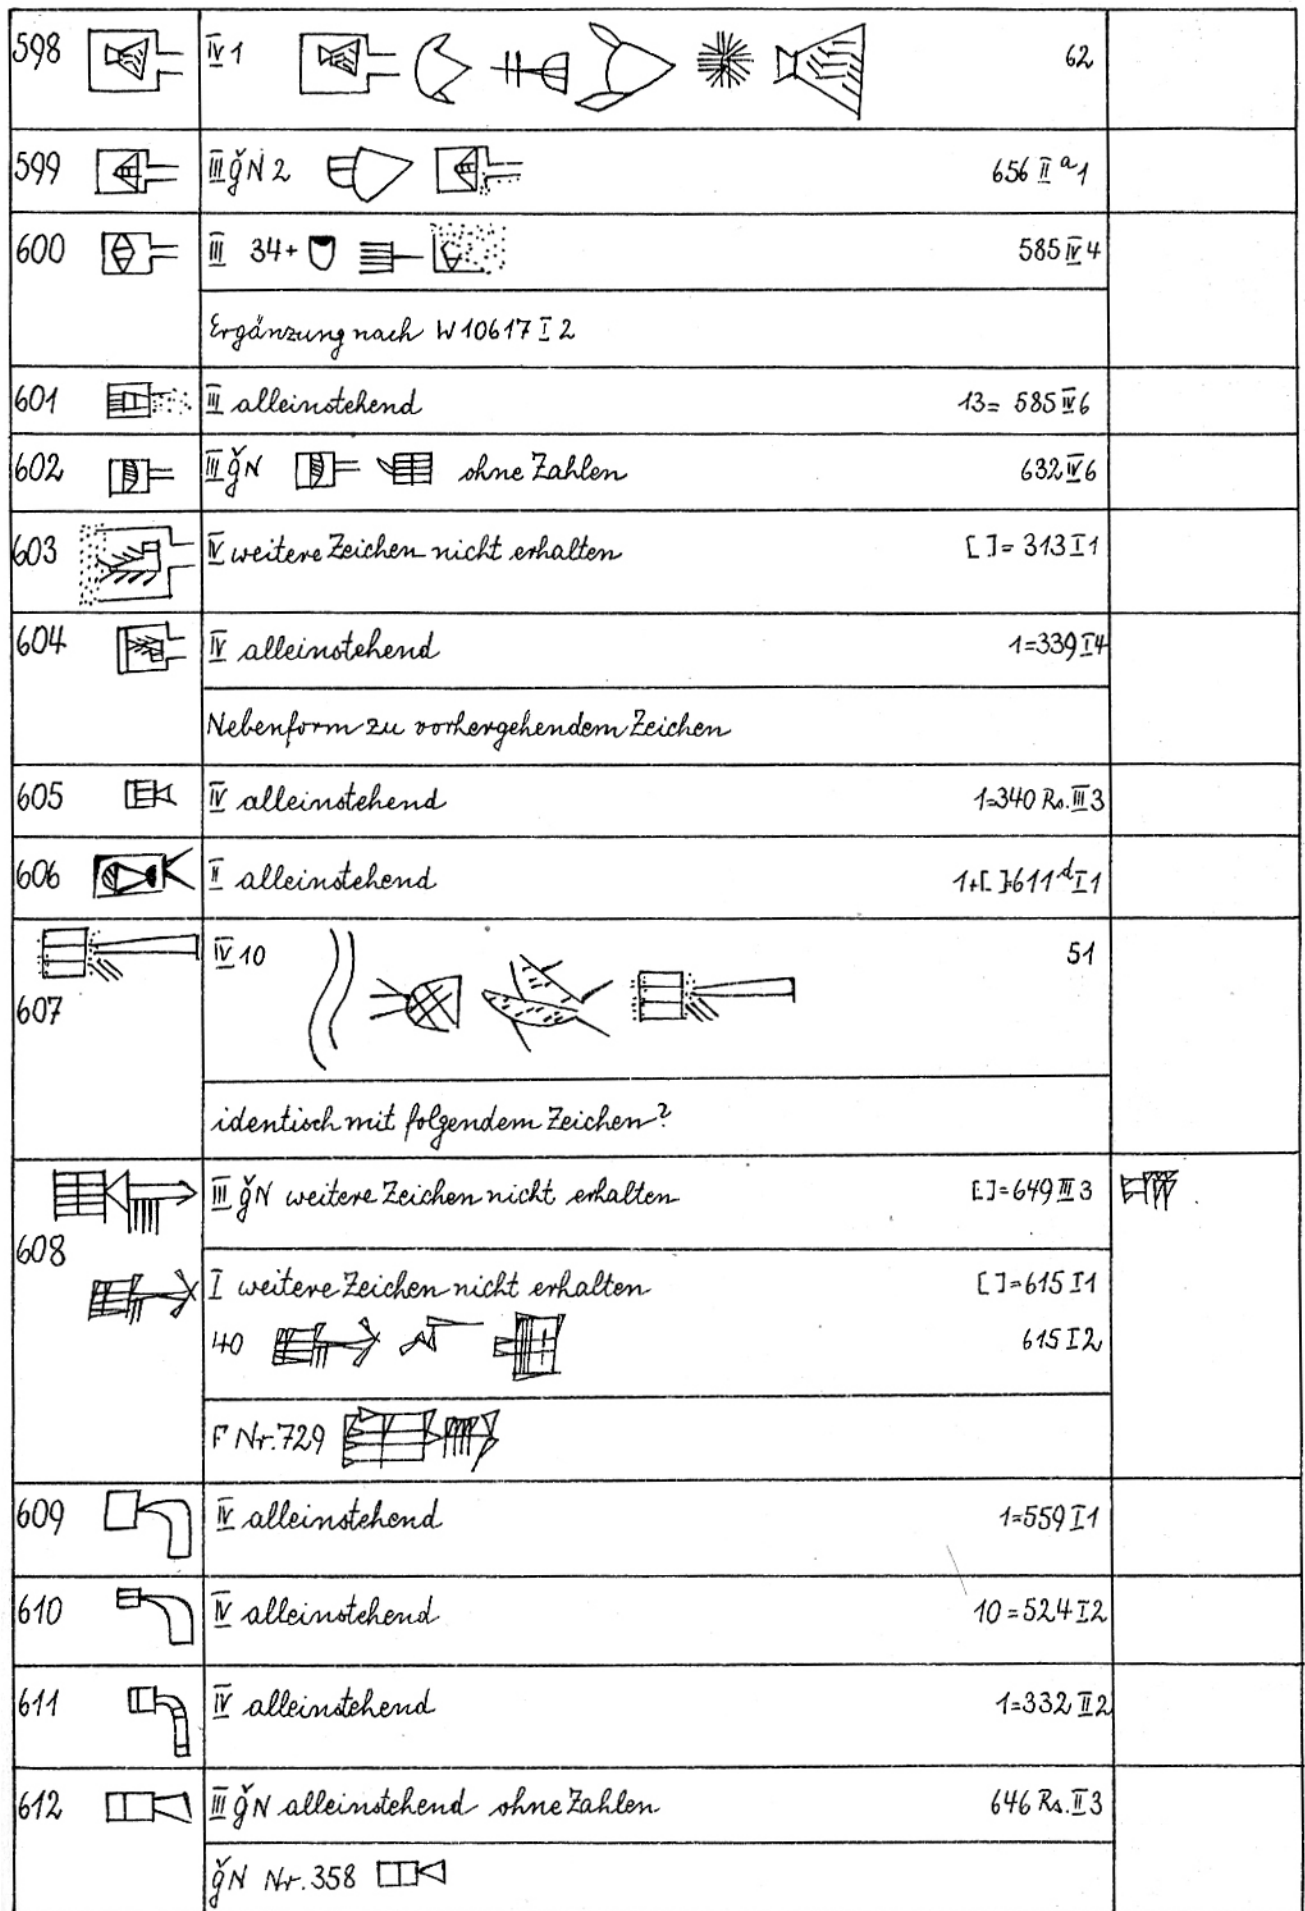 598 IV 1 62
599 III ǧN 2 656 II a 1
600 III 34+ 585 IV 4
Ergänzung nach W 10617 I 2
601 III alleinstehend 13= 585 IV 6
602 III ǧN ohne Zahlen 632 IV 6
603 IV weitere Zeichen nicht erhalten [ ]= 313 I 1
604 IV alleinstehend 1=339 I 4
Nebenform zu vorhergehendem Zeichen
605 IV alleinstehend 1=340 Rs. III 3
606 II alleinstehend 1+[ ]=611 d I 1
607 IV 10 51
identisch mit folgendem Zeichen?
608 III ǧN weitere Zeichen nicht erhalten [ ]=649 III 3
I weitere Zeichen nicht erhalten [ ]=615 I 1
40 615 I 2
F Nr. 729
609 IV alleinstehend 1=559 I 1
610 IV alleinstehend 10=524 I 2
611 IV alleinstehend 1=332 II 2
612 III ǧN alleinstehend ohne Zahlen 646 Rs. II 3
ǧN Nr. 358